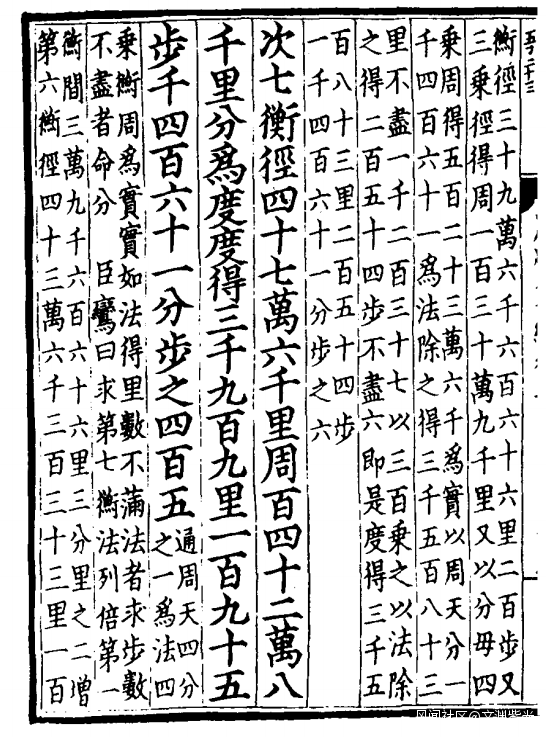 衡徑三十九萬六千六百六十六里二百步又
三乗徑得周一百三十萬九千里又以分母四
乗周得五百二十三萬六千爲實以周天分一
千四百六十一爲法除之得三千五百八十三
里不盡一千二百三十七以三百乗之以法除
之得二百五十四步不盡六即是度得三千五
百八十三里二百五十四步
一千四百六十一分步之六
次七衡徑四十七萬六千里周百四十二萬八
千里分爲度度得三千九百九里一百九十五
步千四百六十一分步之四百五
通周天四分
之一爲法四
乗衡周爲實實如法得里數不滿法者求步數
不盡者命分 臣鸞曰求第七衡法列倍第一
衡間三萬九千六百六十六里三分里之二增
第六衡徑四十三萬六千三百三十三里一百